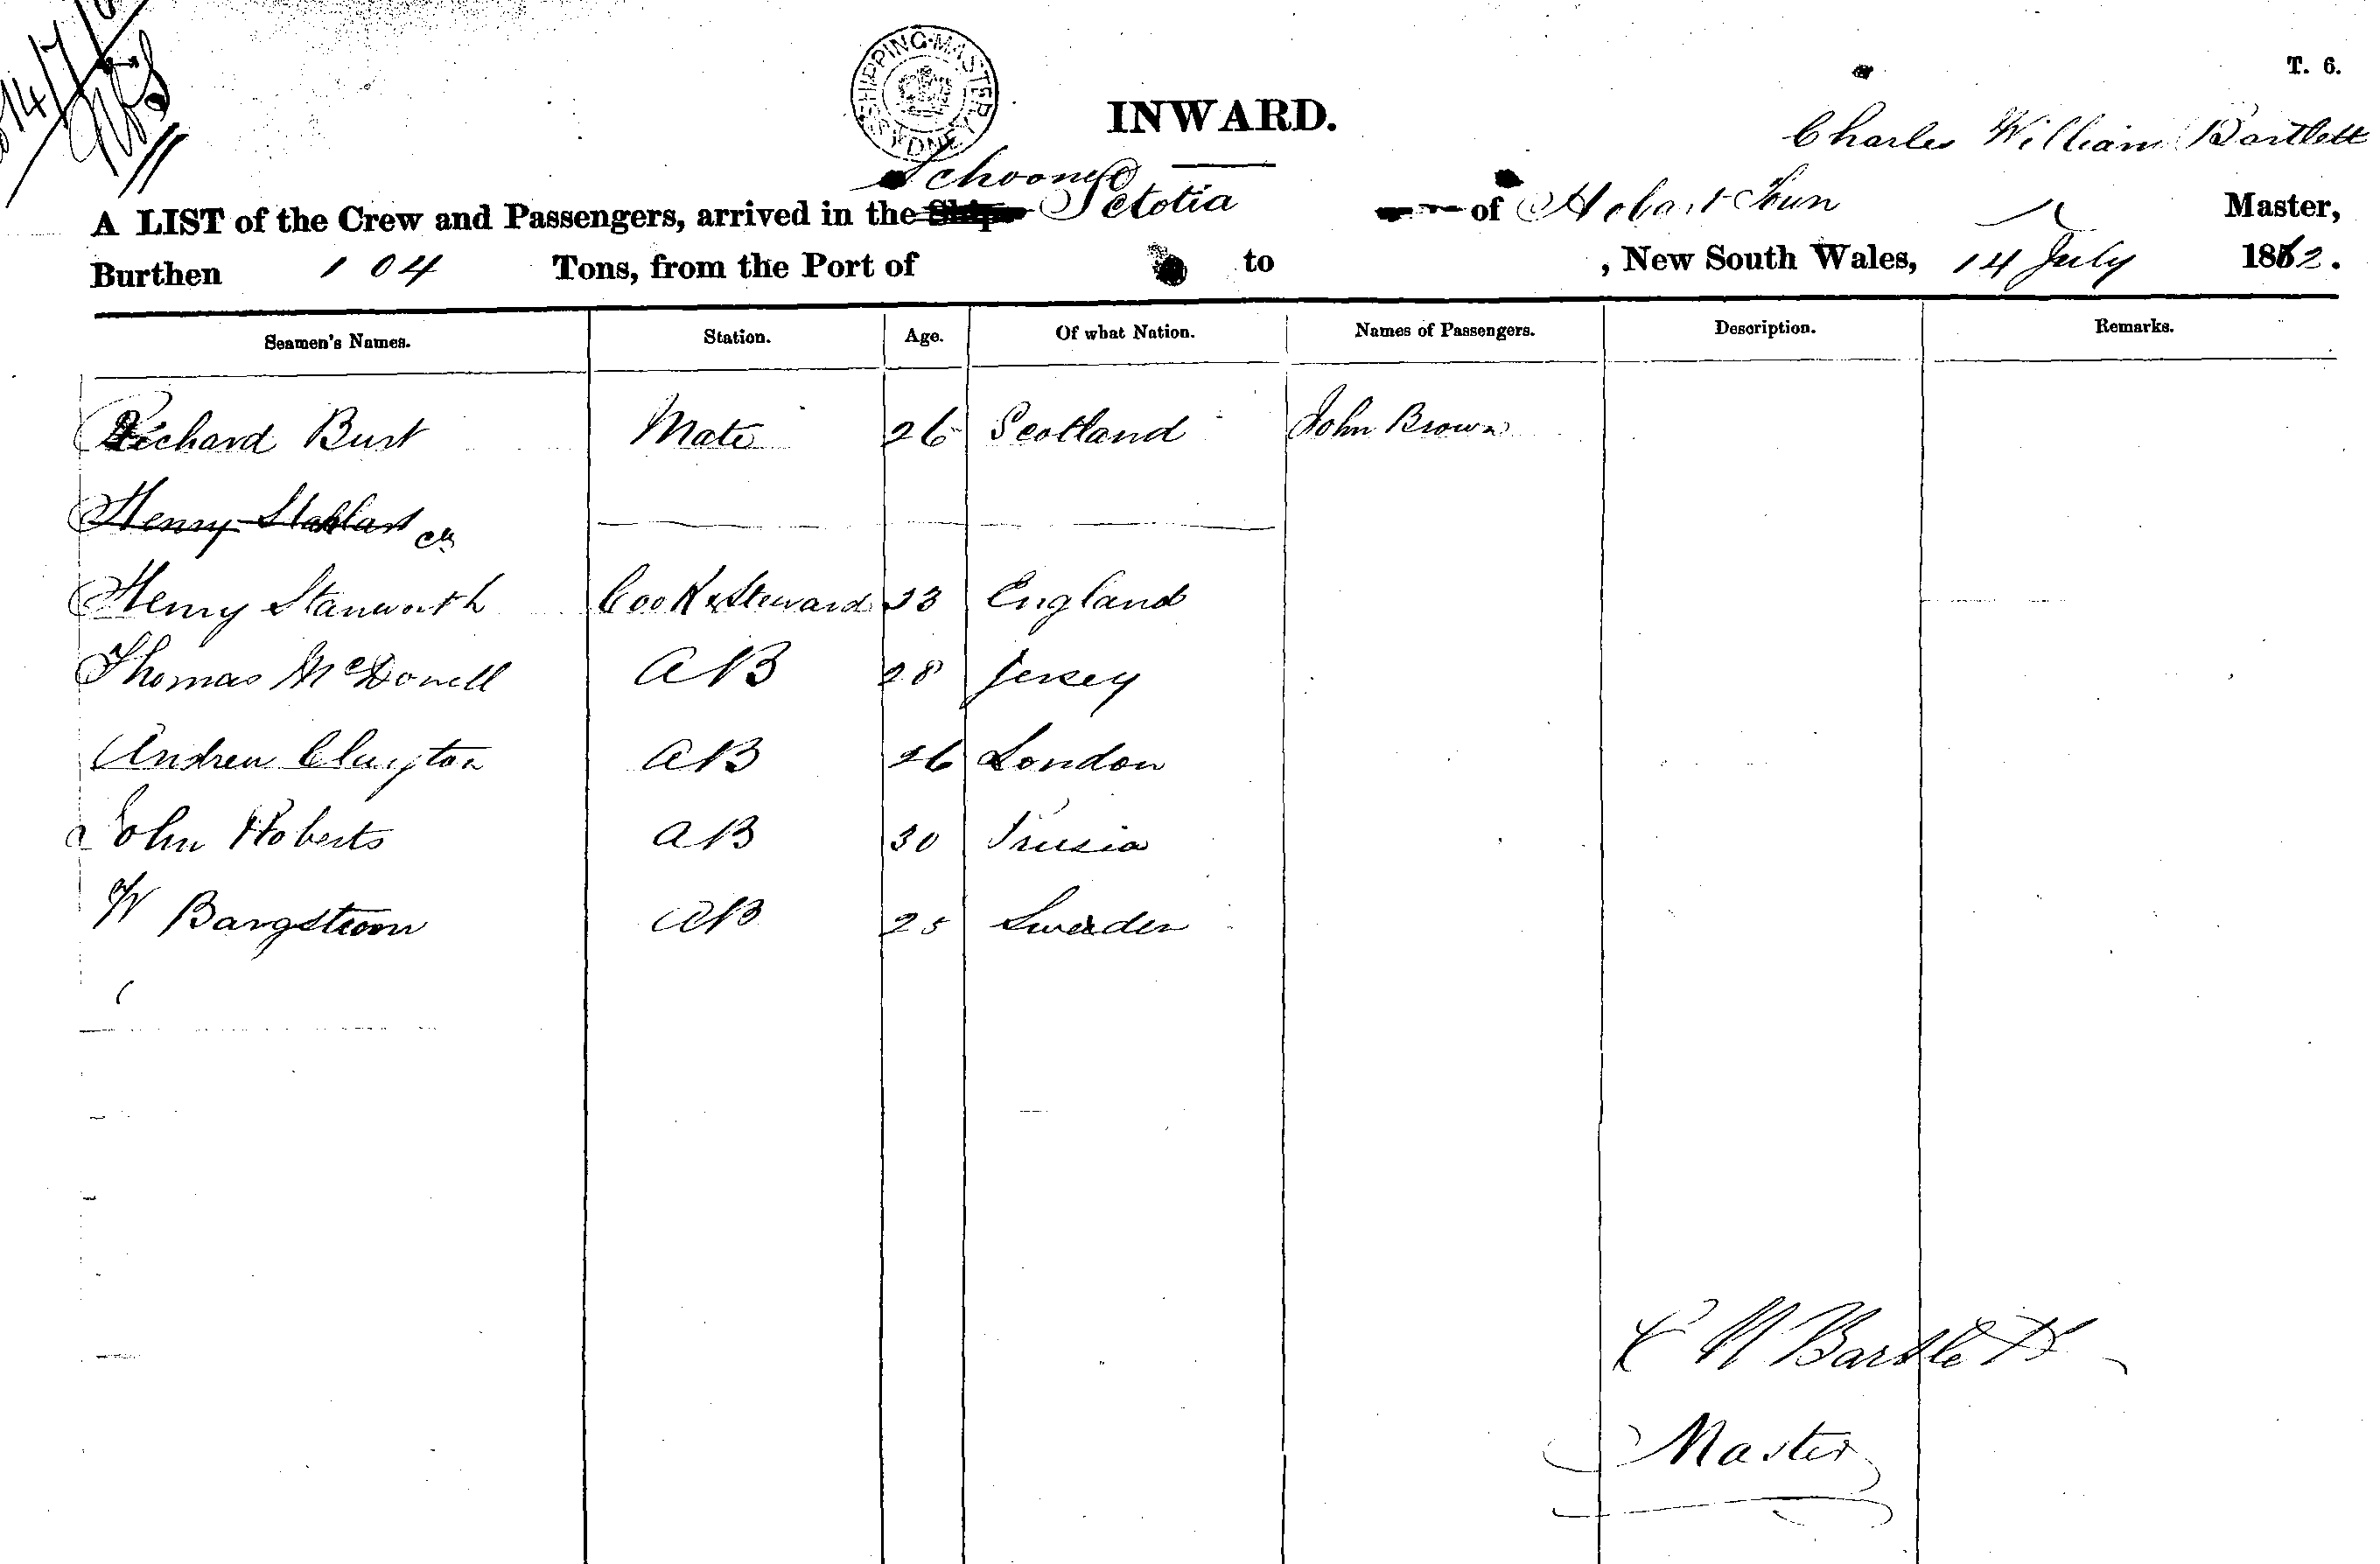 SHIPPING MASTER SYDNEY
T. 6.
INWARD.
Charles William Bartlett
Schooner
A LIST of the Crew and Passengers, arrived in the Ship of Hobart Town Master,
Burthen 104 Tons, from the Port of to , New South Wales, 14 July 1862.
Seamen's Names. Station. Age. Of what Nation. Names of Passengers. Description. Remarks.
Richard Burt Mate 26 Scotland John Brown
Henry
Henry Stanworth Cook & Steward 33 England
Thomas McDonell AB 28 Jersey
Andrew Clayton AB 26 London
John Roberts AB 30 Prusia
W Bangstrom AB 25 Sweden
C W Bartlett
Master